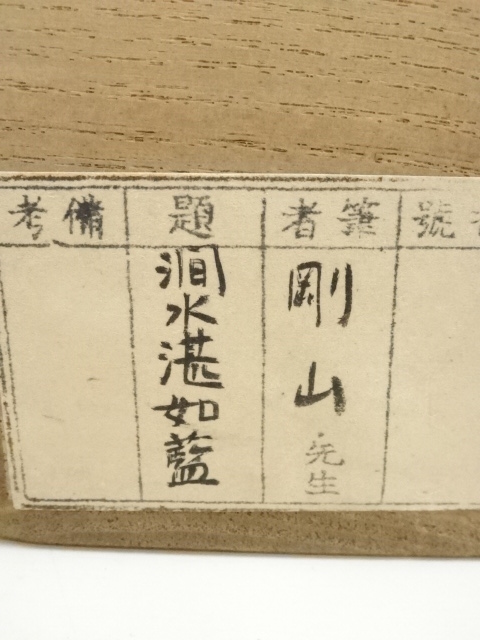 號
筆者
剛山先生
題
澗水湛如藍
備考